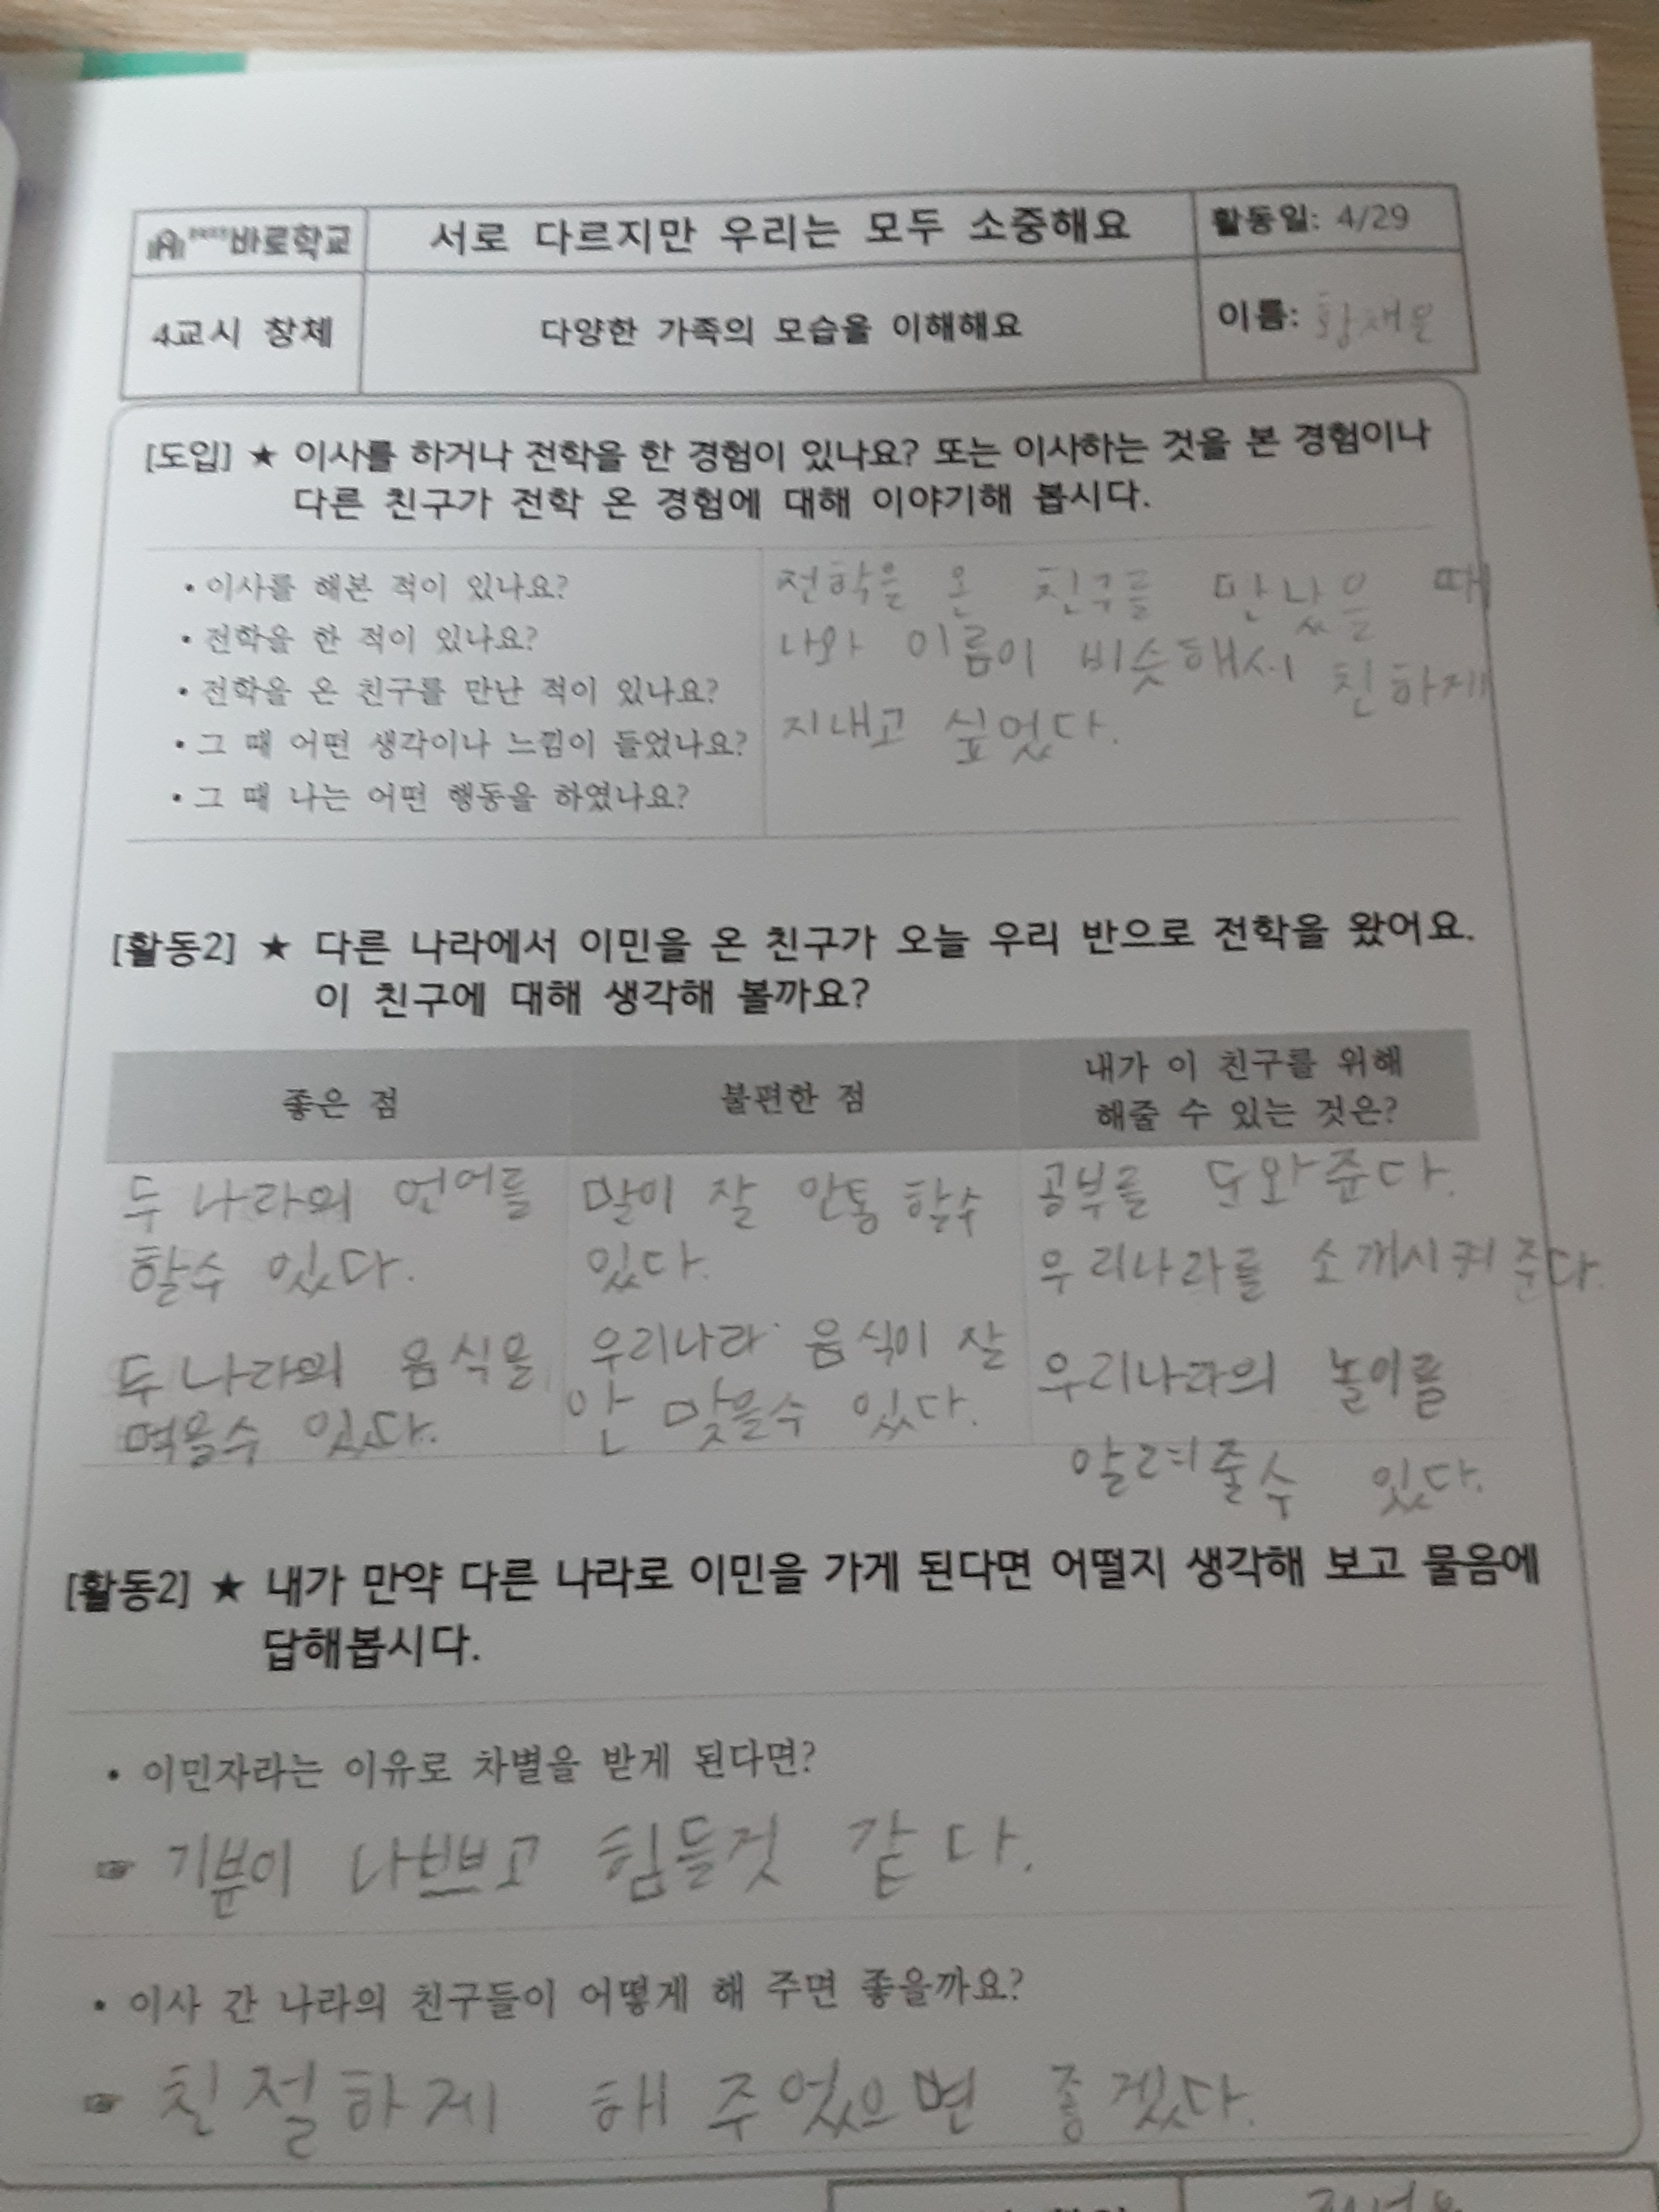 바로학교
서로 다르지만 우리는 모두 소중해요
활동일: 4/29
4교시 창체
다양한 가족의 모습을 이해해요
이름: 황재원
[도입] ★ 이사를 하거나 전학을 한 경험이 있나요? 또는 이사하는 것을 본 경험이나
다른 친구가 전학 온 경험에 대해 이야기해 봅시다.
• 이사를 해본 적이 있나요?
• 전학을 한 적이 있나요?
• 전학을 온 친구를 만난 적이 있나요?
• 그 때 어떤 생각이나 느낌이 들었나요?
• 그 때 나는 어떤 행동을 하였나요?
전학을 온 친구를 만났을 때
나와 이름이 비슷해서 친하게
지내고 싶었다.
[활동2] ★ 다른 나라에서 이민을 온 친구가 오늘 우리 반으로 전학을 왔어요.
이 친구에 대해 생각해 볼까요?
좋은 점
불편한 점
내가 이 친구를 위해
해줄 수 있는 것은?
두 나라의 언어를
할수 있다.
두 나라의 음식을
먹을수 있다.
말이 잘 안통 할수
있다.
우리나라 음식이 잘
안 맞을수 있다.
공부를 도와준다.
우리나라를 소개시켜 준다.
우리나라의 놀이를
알려줄수 있다.
[활동2] ★ 내가 만약 다른 나라로 이민을 가게 된다면 어떨지 생각해 보고 물음에
답해봅시다.
• 이민자라는 이유로 차별을 받게 된다면?
☞ 기분이 나쁘고 힘들것 같다.
• 이사 간 나라의 친구들이 어떻게 해 주면 좋을까요?
☞ 친절하게 해 주었으면 좋겠다.